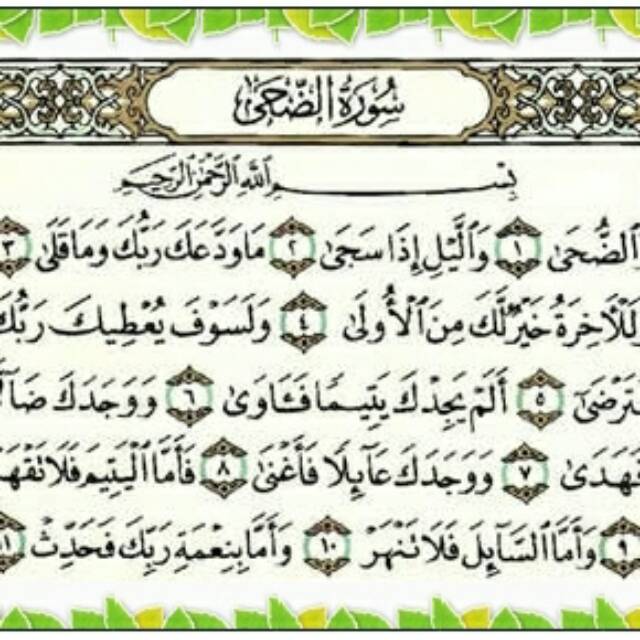 سُورَةُ الضُّحَىٰ
بِسْمِ اللَّهِ الرَّحْمَٰنِ الرَّحِيمِ
الضُّحَىٰ ١ وَاللَّيْلِ إِذَا سَجَىٰ ٢ مَا وَدَّعَكَ رَبُّكَ وَمَا قَلَىٰ ٣
لِلْآخِرَةُ خَيْرٌ لَّكَ مِنَ الْأُولَىٰ ٤ وَلَسَوْفَ يُعْطِيكَ رَبُّكَ
تَرْضَىٰ ٥ أَلَمْ يَجِدْكَ يَتِيمًا فَـَٔاوَىٰ ٦ وَوَجَدَكَ ضَآلًّا
فَهَدَىٰ ٧ وَوَجَدَكَ عَآئِلًا فَأَغْنَىٰ ٨ فَأَمَّا الْيَتِيمَ فَلَا تَقْهَرْ
٩ وَأَمَّا السَّآئِلَ فَلَا تَنْهَرْ ١٠ وَأَمَّا بِنِعْمَةِ رَبِّكَ فَحَدِّثْ ١١